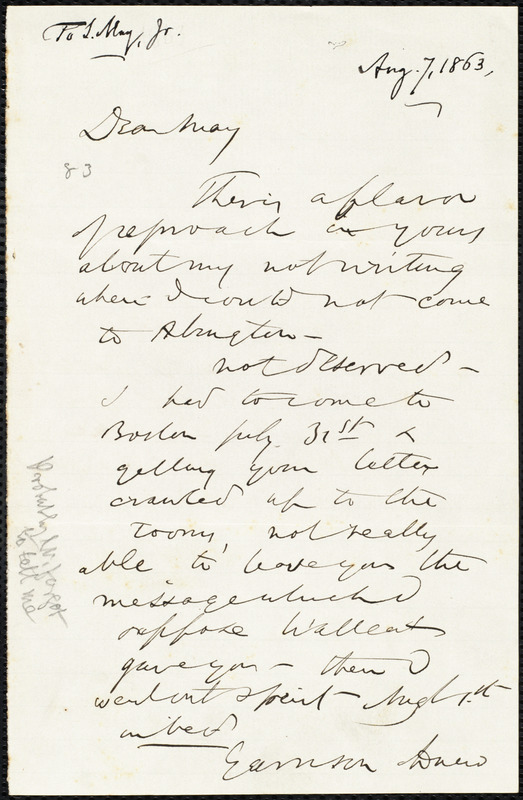 To S. May, Jr.
Aug. 7, 1863,
Dear May
83
There is a flavor
of reproach in yours
about my not writing
when I could not come
to Abington -
not deserved -
I had to come to
Boston July 31st &
getting your letter
crawled up to the
rooms, not really
able to leave you the
message which I
suppose Wallcut
gave you - then I
went out & spent Augt 1st
in bed
Garrison knew